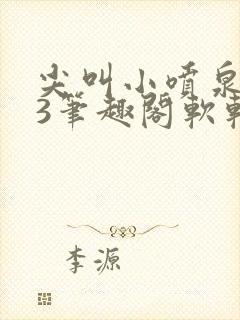 尖叫小喷泉
3笔趣阁软
李源